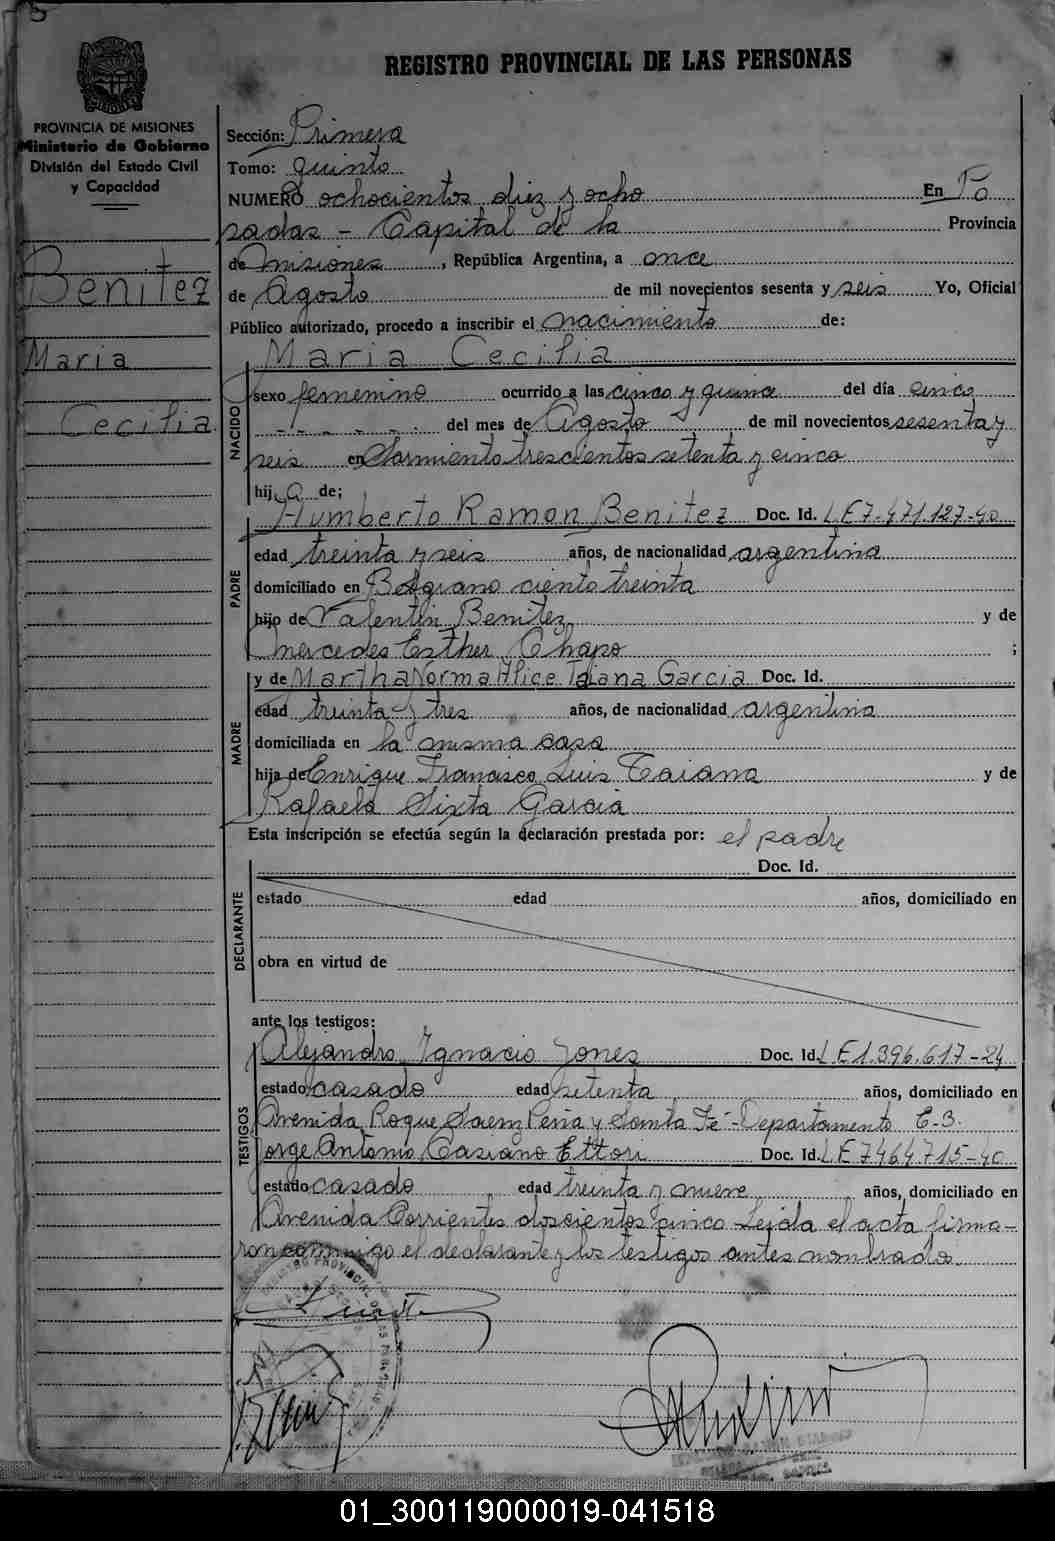 REGISTRO PROVINCIAL DE LAS PERSONAS
PROVINCIA DE MISIONES
Ministerio de Gobierno
División del Estado Civil
y Capacidad
Benitez
Maria
Cecilia
Sección: Primera
Tomo: quinto
NUMERO ochocientos diez y ocho En Po
sadas - Capital de la Provincia
de Misiones, República Argentina, a once
de Agosto de mil novecientos sesenta y seis Yo, Oficial
Público autorizado, procedo a inscribir el nacimiento de:
Maria Cecilia
NACIDO
sexo femenino ocurrido a las cinco y quince del día cinco
del mes de Agosto de mil novecientos sesenta y
seis en Sarmiento trescientos setenta y cinco
hija de;
Humberto Ramon Benitez Doc. Id. L.E 7.471.127-40
PADRE
edad treinta y seis años, de nacionalidad argentina
domiciliado en Belgrano ciento treinta
hijo de Valentin Benitez y de
Mercedes Esther Chapo ;
MADRE
y de Martha Norma Alice Taiana Garcia Doc. Id.
edad treinta y tres años, de nacionalidad argentina
domiciliada en la misma casa
hija de Enrique Francisco Luis Taiana y de
Rafaela Sixta Garcia
Esta inscripción se efectúa según la declaración prestada por: el padre
Doc. Id.
DECLARANTE
estado edad años, domiciliado en
obra en virtud de
ante los testigos:
TESTIGOS
Alejandro Ignacio Jones Doc. Id. L.E 1.396.617-24
estado casado edad setenta años, domiciliado en
Avenida Roque Saenz Peña y Santa Fé - Departamento E-3.
Jorge Antonio Casiano Ettori Doc. Id. L.E 7464715-40
estado casado edad treinta y nueve años, domiciliado en
Avenida Corrientes doscientos cinco Leida el acta firma-
ron conmigo el declarante y los testigos antes nombrado.
01_300119000019-041518